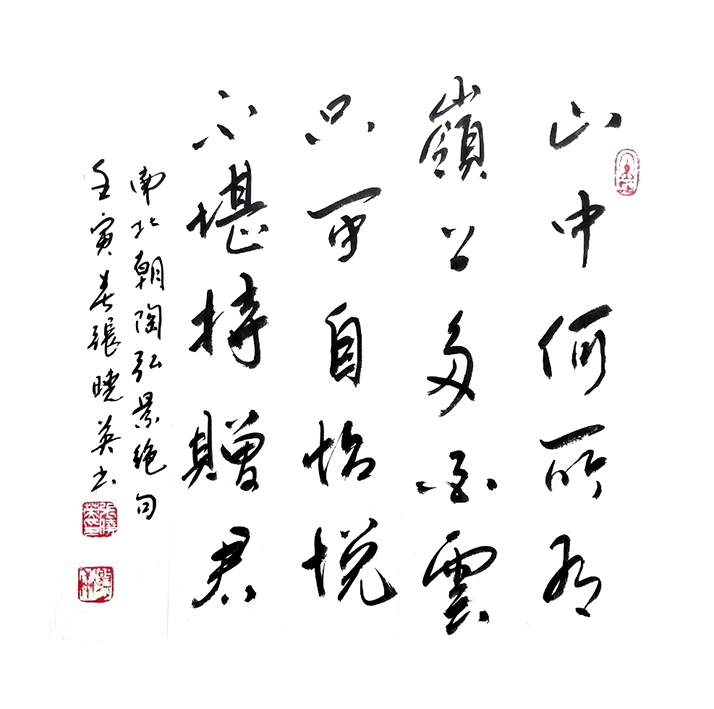 山中何所有
嶺上多白雲
只可自怡悦
不堪持贈君
南北朝陶弘景绝句
壬寅春張晓英书